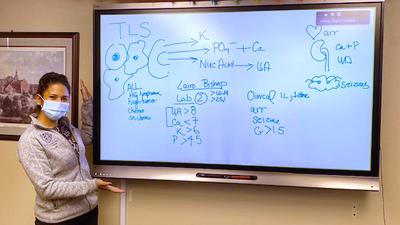 TLS
K
PO4- + Ca
Nuc Acid → UA
arr
Ca + P
UA
Seizures
ALL
Agg lymphoma
high tumor
chemo
Cairo Bishop
Lab (2) >
UA > 8
Ca < 7
K > 6
P > 4.5
Clinical 1L,
arr
Seizure
Cr > 1.5